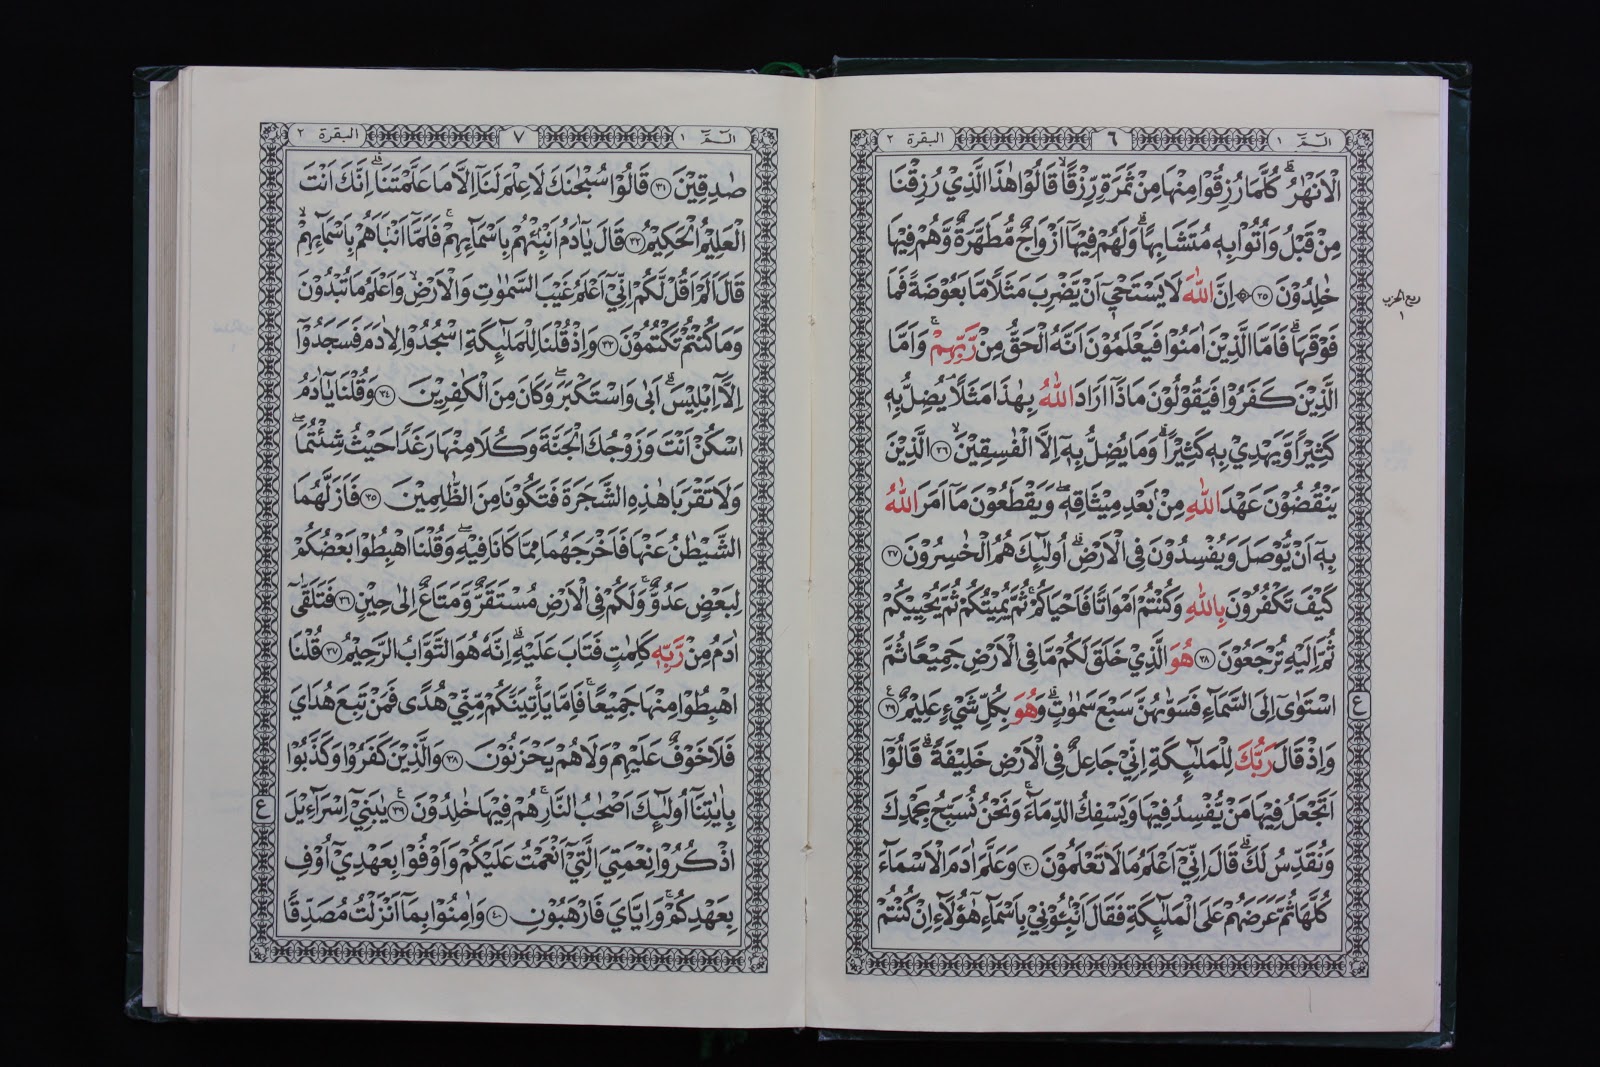 الٓمّٓ ١
٦
البقرة ٢
الْاَنْهٰرُ ۗ كُلَّمَا رُزِقُوْا مِنْهَا مِنْ ثَمَرَةٍ رِّزْقًا ۙ قَالُوْا هٰذَا الَّذِيْ رُزِقْنَا
مِنْ قَبْلُ وَاُتُوْا بِهٖ مُتَشَابِهًا ۗ وَلَهُمْ فِيْهَآ اَزْوَاجٌ مُّطَهَّرَةٌ وَّهُمْ فِيْهَا
خٰلِدُوْنَ ۝٢٥ اِنَّ اللّٰهَ لَا يَسْتَحْيٖٓ اَنْ يَّضْرِبَ مَثَلًا مَّا بَعُوْضَةً فَمَا
فَوْقَهَا ۗ فَاَمَّا الَّذِيْنَ اٰمَنُوْا فَيَعْلَمُوْنَ اَنَّهُ الْحَقُّ مِنْ رَّبِّهِمْ ۚ وَاَمَّا
الَّذِيْنَ كَفَرُوْا فَيَقُوْلُوْنَ مَاذَآ اَرَادَ اللّٰهُ بِهٰذَا مَثَلًا ۘ يُضِلُّ بِهٖ
كَثِيْرًا وَّيَهْدِيْ بِهٖ كَثِيْرًا ۗ وَمَا يُضِلُّ بِهٖٓ اِلَّا الْفٰسِقِيْنَ ۙ ۝٢٦ الَّذِيْنَ
يَنْقُضُوْنَ عَهْدَ اللّٰهِ مِنْۢ بَعْدِ مِيْثَاقِهٖ ۖ وَيَقْطَعُوْنَ مَآ اَمَرَ اللّٰهُ
بِهٖٓ اَنْ يُّوْصَلَ وَيُفْسِدُوْنَ فِى الْاَرْضِ ۗ اُولٰۤىِٕكَ هُمُ الْخٰسِرُوْنَ ۝٢٧
كَيْفَ تَكْفُرُوْنَ بِاللّٰهِ وَكُنْتُمْ اَمْوَاتًا فَاَحْيَاكُمْ ۚ ثُمَّ يُمِيْتُكُمْ ثُمَّ يُحْيِيْكُمْ
ثُمَّ اِلَيْهِ تُرْجَعُوْنَ ۝٢٨ هُوَ الَّذِيْ خَلَقَ لَكُمْ مَّا فِى الْاَرْضِ جَمِيْعًا ثُمَّ
اسْتَوٰٓى اِلَى السَّمَاۤءِ فَسَوّٰىهُنَّ سَبْعَ سَمٰوٰتٍ ۗ وَهُوَ بِكُلِّ شَيْءٍ عَلِيْمٌ ۝٢٩
وَاِذْ قَالَ رَبُّكَ لِلْمَلٰۤىِٕكَةِ اِنِّيْ جَاعِلٌ فِى الْاَرْضِ خَلِيْفَةً ۗ قَالُوْٓا
اَتَجْعَلُ فِيْهَا مَنْ يُّفْسِدُ فِيْهَا وَيَسْفِكُ الدِّمَاۤءَ ۚ وَنَحْنُ نُسَبِّحُ بِحَمْدِكَ
وَنُقَدِّسُ لَكَ ۗ قَالَ اِنِّيْٓ اَعْلَمُ مَا لَا تَعْلَمُوْنَ ۝٣٠ وَعَلَّمَ اٰدَمَ الْاَسْمَاۤءَ
كُلَّهَا ثُمَّ عَرَضَهُمْ عَلَى الْمَلٰۤىِٕكَةِ فَقَالَ اَنْۢبِـُٔوْنِيْ بِاَسْمَاۤءِ هٰٓؤُلَاۤءِ اِنْ كُنْتُمْ
ربع الحزب
١
ع
الٓمّٓ ١
٧
البقرة ٢
صٰدِقِيْنَ ۝٣١ قَالُوْا سُبْحٰنَكَ لَا عِلْمَ لَنَآ اِلَّا مَا عَلَّمْتَنَا ۗ اِنَّكَ اَنْتَ
الْعَلِيْمُ الْحَكِيْمُ ۝٣٢ قَالَ يٰٓاٰدَمُ اَنْۢبِئْهُمْ بِاَسْمَاۤىِٕهِمْ ۚ فَلَمَّآ اَنْۢبَاَهُمْ بِاَسْمَاۤىِٕهِمْ ۙ
قَالَ اَلَمْ اَقُلْ لَّكُمْ اِنِّيْٓ اَعْلَمُ غَيْبَ السَّمٰوٰتِ وَالْاَرْضِ ۙ وَاَعْلَمُ مَا تُبْدُوْنَ
وَمَا كُنْتُمْ تَكْتُمُوْنَ ۝٣٣ وَاِذْ قُلْنَا لِلْمَلٰۤىِٕكَةِ اسْجُدُوْا لِاٰدَمَ فَسَجَدُوْٓا
اِلَّآ اِبْلِيْسَ ۗ اَبٰى وَاسْتَكْبَرَ ۖ وَكَانَ مِنَ الْكٰفِرِيْنَ ۝٣٤ وَقُلْنَا يٰٓاٰدَمُ
اسْكُنْ اَنْتَ وَزَوْجُكَ الْجَنَّةَ وَكُلَا مِنْهَا رَغَدًا حَيْثُ شِئْتُمَا ۖ
وَلَا تَقْرَبَا هٰذِهِ الشَّجَرَةَ فَتَكُوْنَا مِنَ الظّٰلِمِيْنَ ۝٣٥ فَاَزَلَّهُمَا
الشَّيْطٰنُ عَنْهَا فَاَخْرَجَهُمَا مِمَّا كَانَا فِيْهِ ۖ وَقُلْنَا اهْبِطُوْا بَعْضُكُمْ
لِبَعْضٍ عَدُوٌّ ۚ وَلَكُمْ فِى الْاَرْضِ مُسْتَقَرٌّ وَّمَتَاعٌ اِلٰى حِيْنٍ ۝٣٦ فَتَلَقّٰٓى
اٰدَمُ مِنْ رَّبِّهٖ كَلِمٰتٍ فَتَابَ عَلَيْهِ ۗ اِنَّهٗ هُوَ التَّوَّابُ الرَّحِيْمُ ۝٣٧ قُلْنَا
اهْبِطُوْا مِنْهَا جَمِيْعًا ۚ فَاِمَّا يَأْتِيَنَّكُمْ مِّنِّيْ هُدًى فَمَنْ تَبِعَ هُدَايَ
فَلَا خَوْفٌ عَلَيْهِمْ وَلَا هُمْ يَحْزَنُوْنَ ۝٣٨ وَالَّذِيْنَ كَفَرُوْا وَكَذَّبُوْا
بِاٰيٰتِنَآ اُولٰۤىِٕكَ اَصْحٰبُ النَّارِ ۚ هُمْ فِيْهَا خٰلِدُوْنَ ۝٣٩ يٰبَنِيْٓ اِسْرَاۤءِيْلَ
اذْكُرُوْا نِعْمَتِيَ الَّتِيْٓ اَنْعَمْتُ عَلَيْكُمْ وَاَوْفُوْا بِعَهْدِيْٓ اُوْفِ
بِعَهْدِكُمْ ۚ وَاِيَّايَ فَارْهَبُوْنِ ۝٤٠ وَاٰمِنُوْا بِمَآ اَنْزَلْتُ مُصَدِّقًا
ع